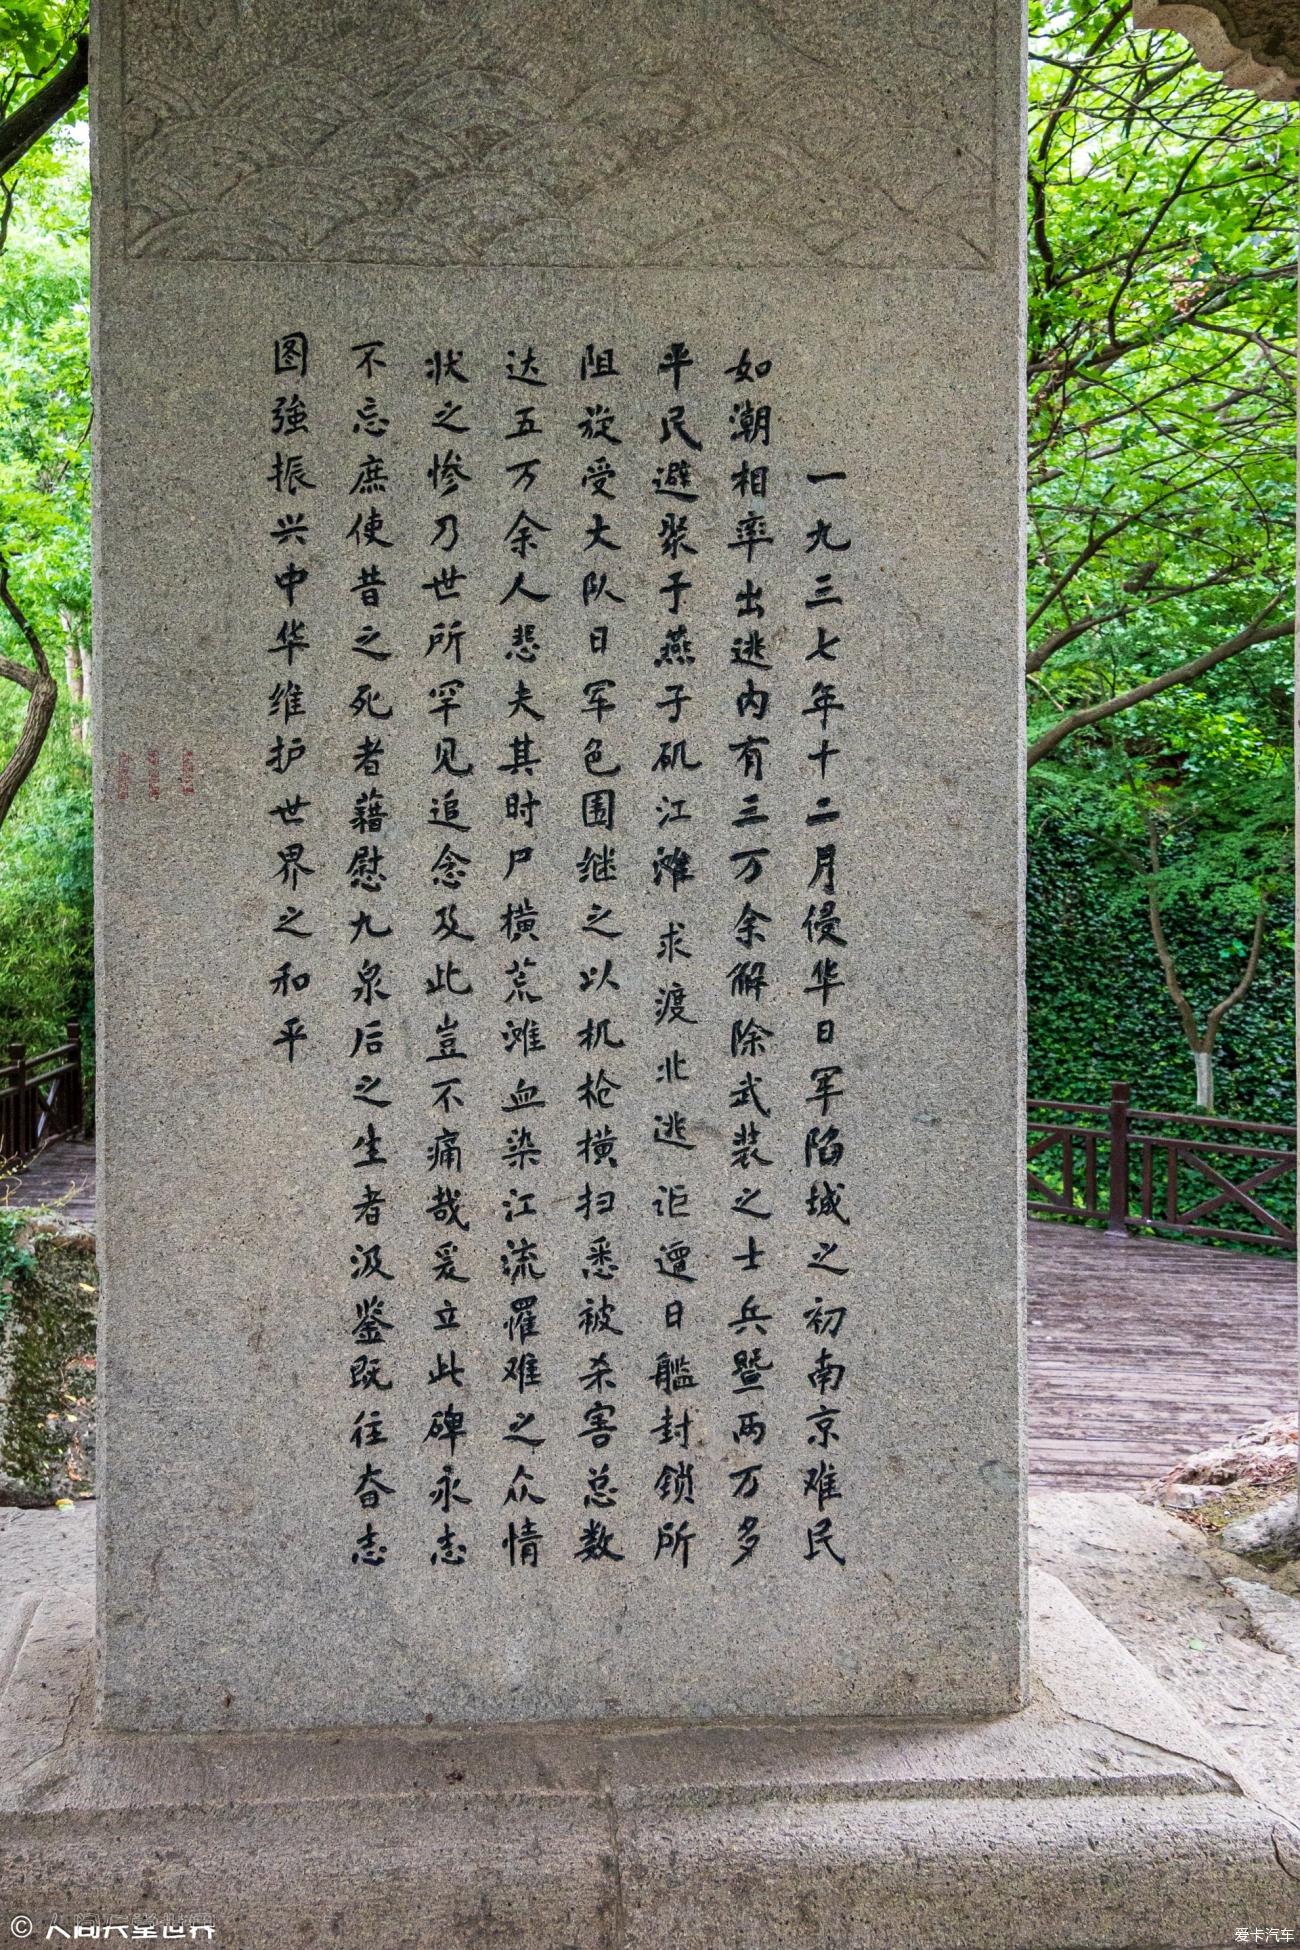 一九三七年十二月侵华日军陷城之初南京难民
如潮相率出逃内有三万余解除武装之士兵暨两万多
平民避聚于燕子矶江滩求渡北逃讵遭日艦封锁所
阻旋受大队日军色围继之以机枪横扫悉被杀害总数
达五万余人悲夫其时尸横荒滩血染江流罹难之众情
状之惨乃世所罕见追念及此豈不痛哉爰立此碑永志
不忘庶使昔之死者藉慰九泉后之生者汲鉴既往奋志
图強振兴中华维护世界之和平
© 人间天堂世界
爱卡汽车